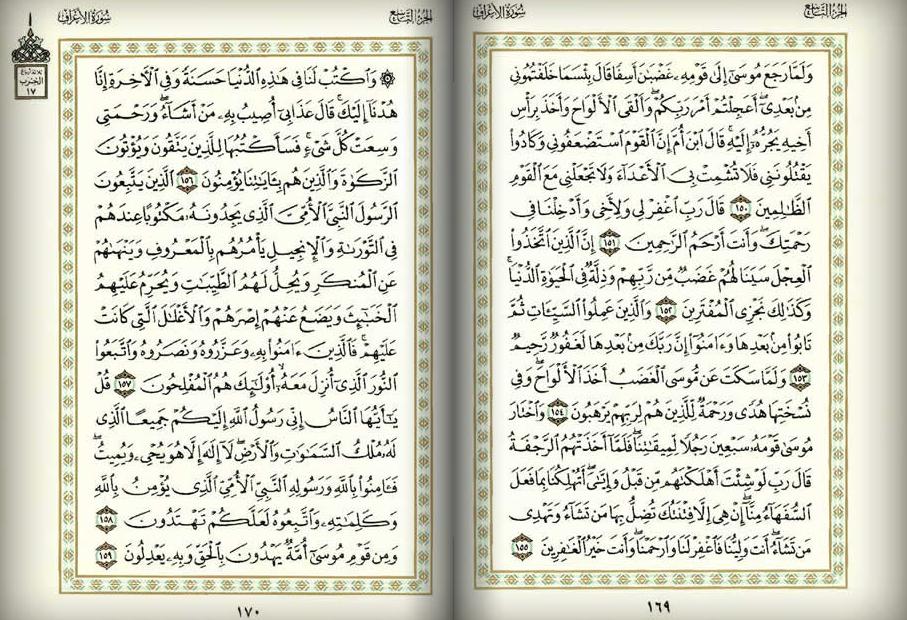 الجزء التاسع
سورة الأعراف
وَلَمَّا رَجَعَ مُوسَىٰٓ إِلَىٰ قَوْمِهِۦ غَضْبَٰنَ أَسِفًا قَالَ بِئْسَمَا خَلَفْتُمُونِي
مِنۢ بَعْدِيٓۖ أَعَجِلْتُمْ أَمْرَ رَبِّكُمْۖ وَأَلْقَى ٱلْأَلْوَاحَ وَأَخَذَ بِرَأْسِ
أَخِيهِ يَجُرُّهُۥٓ إِلَيْهِۚ قَالَ ٱبْنَ أُمَّ إِنَّ ٱلْقَوْمَ ٱسْتَضْعَفُونِي وَكَادُوا۟
يَقْتُلُونَنِي فَلَا تُشْمِتْ بِيَ ٱلْأَعْدَآءَ وَلَا تَجْعَلْنِي مَعَ ٱلْقَوْمِ
ٱلظَّٰلِمِينَ ١٥٠ قَالَ رَبِّ ٱغْفِرْ لِي وَلِأَخِي وَأَدْخِلْنَا فِي
رَحْمَتِكَۖ وَأَنتَ أَرْحَمُ ٱلرَّٰحِمِينَ ١٥١ إِنَّ ٱلَّذِينَ ٱتَّخَذُوا۟
ٱلْعِجْلَ سَيَنَالُهُمْ غَضَبٌ مِّن رَّبِّهِمْ وَذِلَّةٌ فِي ٱلْحَيَوٰةِ ٱلدُّنْيَاۚ
وَكَذَٰلِكَ نَجْزِي ٱلْمُفْتَرِينَ ١٥٢ وَٱلَّذِينَ عَمِلُوا۟ ٱلسَّيِّـَٔاتِ ثُمَّ
تَابُوا۟ مِنۢ بَعْدِهَا وَءَامَنُوٓا۟ إِنَّ رَبَّكَ مِنۢ بَعْدِهَا لَغَفُورٌ رَّحِيمٌ
١٥٣ وَلَمَّا سَكَتَ عَن مُّوسَى ٱلْغَضَبُ أَخَذَ ٱلْأَلْوَاحَۖ وَفِي
نُسْخَتِهَا هُدًى وَرَحْمَةٌ لِّلَّذِينَ هُمْ لِرَبِّهِمْ يَرْهَبُونَ ١٥٤ وَٱخْتَارَ
مُوسَىٰ قَوْمَهُۥ سَبْعِينَ رَجُلًا لِّمِيقَٰتِنَاۖ فَلَمَّآ أَخَذَتْهُمُ ٱلرَّجْفَةُ
قَالَ رَبِّ لَوْ شِئْتَ أَهْلَكْتَهُم مِّن قَبْلُ وَإِيَّٰيَۖ أَتُهْلِكُنَا بِمَا فَعَلَ
ٱلسُّفَهَآءُ مِنَّآۖ إِنْ هِيَ إِلَّا فِتْنَتُكَ تُضِلُّ بِهَا مَن تَشَآءُ وَتَهْدِي
مَن تَشَآءُۖ أَنتَ وَلِيُّنَا فَٱغْفِرْ لَنَا وَٱرْحَمْنَاۖ وَأَنتَ خَيْرُ ٱلْغَٰفِرِينَ ١٥٥
١٦٩
الجزء التاسع
سورة الأعراف
الحزب
١٧
۞ وَٱكْتُبْ لَنَا فِي هَٰذِهِ ٱلدُّنْيَا حَسَنَةً وَفِي ٱلْءَاخِرَةِ إِنَّا
هُدْنَآ إِلَيْكَۚ قَالَ عَذَابِيٓ أُصِيبُ بِهِۦ مَنْ أَشَآءُۖ وَرَحْمَتِي
وَسِعَتْ كُلَّ شَيْءٍۚ فَسَأَكْتُبُهَا لِلَّذِينَ يَتَّقُونَ وَيُؤْتُونَ
ٱلزَّكَوٰةَ وَٱلَّذِينَ هُم بِـَٔايَٰتِنَا يُؤْمِنُونَ ١٥٦ ٱلَّذِينَ يَتَّبِعُونَ
ٱلرَّسُولَ ٱلنَّبِيَّ ٱلْأُمِّيَّ ٱلَّذِي يَجِدُونَهُۥ مَكْتُوبًا عِندَهُمْ
فِي ٱلتَّوْرَىٰةِ وَٱلْإِنجِيلِ يَأْمُرُهُم بِٱلْمَعْرُوفِ وَيَنْهَىٰهُمْ
عَنِ ٱلْمُنكَرِ وَيُحِلُّ لَهُمُ ٱلطَّيِّبَٰتِ وَيُحَرِّمُ عَلَيْهِمُ
ٱلْخَبَٰٓئِثَ وَيَضَعُ عَنْهُمْ إِصْرَهُمْ وَٱلْأَغْلَٰلَ ٱلَّتِي كَانَتْ
عَلَيْهِمْۚ فَٱلَّذِينَ ءَامَنُوا۟ بِهِۦ وَعَزَّرُوهُ وَنَصَرُوهُ وَٱتَّبَعُوا۟
ٱلنُّورَ ٱلَّذِيٓ أُنزِلَ مَعَهُۥٓ أُو۟لَٰٓئِكَ هُمُ ٱلْمُفْلِحُونَ ١٥٧ قُلْ
يَٰٓأَيُّهَا ٱلنَّاسُ إِنِّي رَسُولُ ٱللَّهِ إِلَيْكُمْ جَمِيعًا ٱلَّذِي
لَهُۥ مُلْكُ ٱلسَّمَٰوَٰتِ وَٱلْأَرْضِۖ لَآ إِلَٰهَ إِلَّا هُوَ يُحْيِۦ وَيُمِيتُۖ
فَـَٔامِنُوا۟ بِٱللَّهِ وَرَسُولِهِ ٱلنَّبِيِّ ٱلْأُمِّيِّ ٱلَّذِي يُؤْمِنُ بِٱللَّهِ
وَكَلِمَٰتِهِۦ وَٱتَّبِعُوهُ لَعَلَّكُمْ تَهْتَدُونَ ١٥٨
وَمِن قَوْمِ مُوسَىٰٓ أُمَّةٌ يَهْدُونَ بِٱلْحَقِّ وَبِهِۦ يَعْدِلُونَ ١٥٩
١٧٠